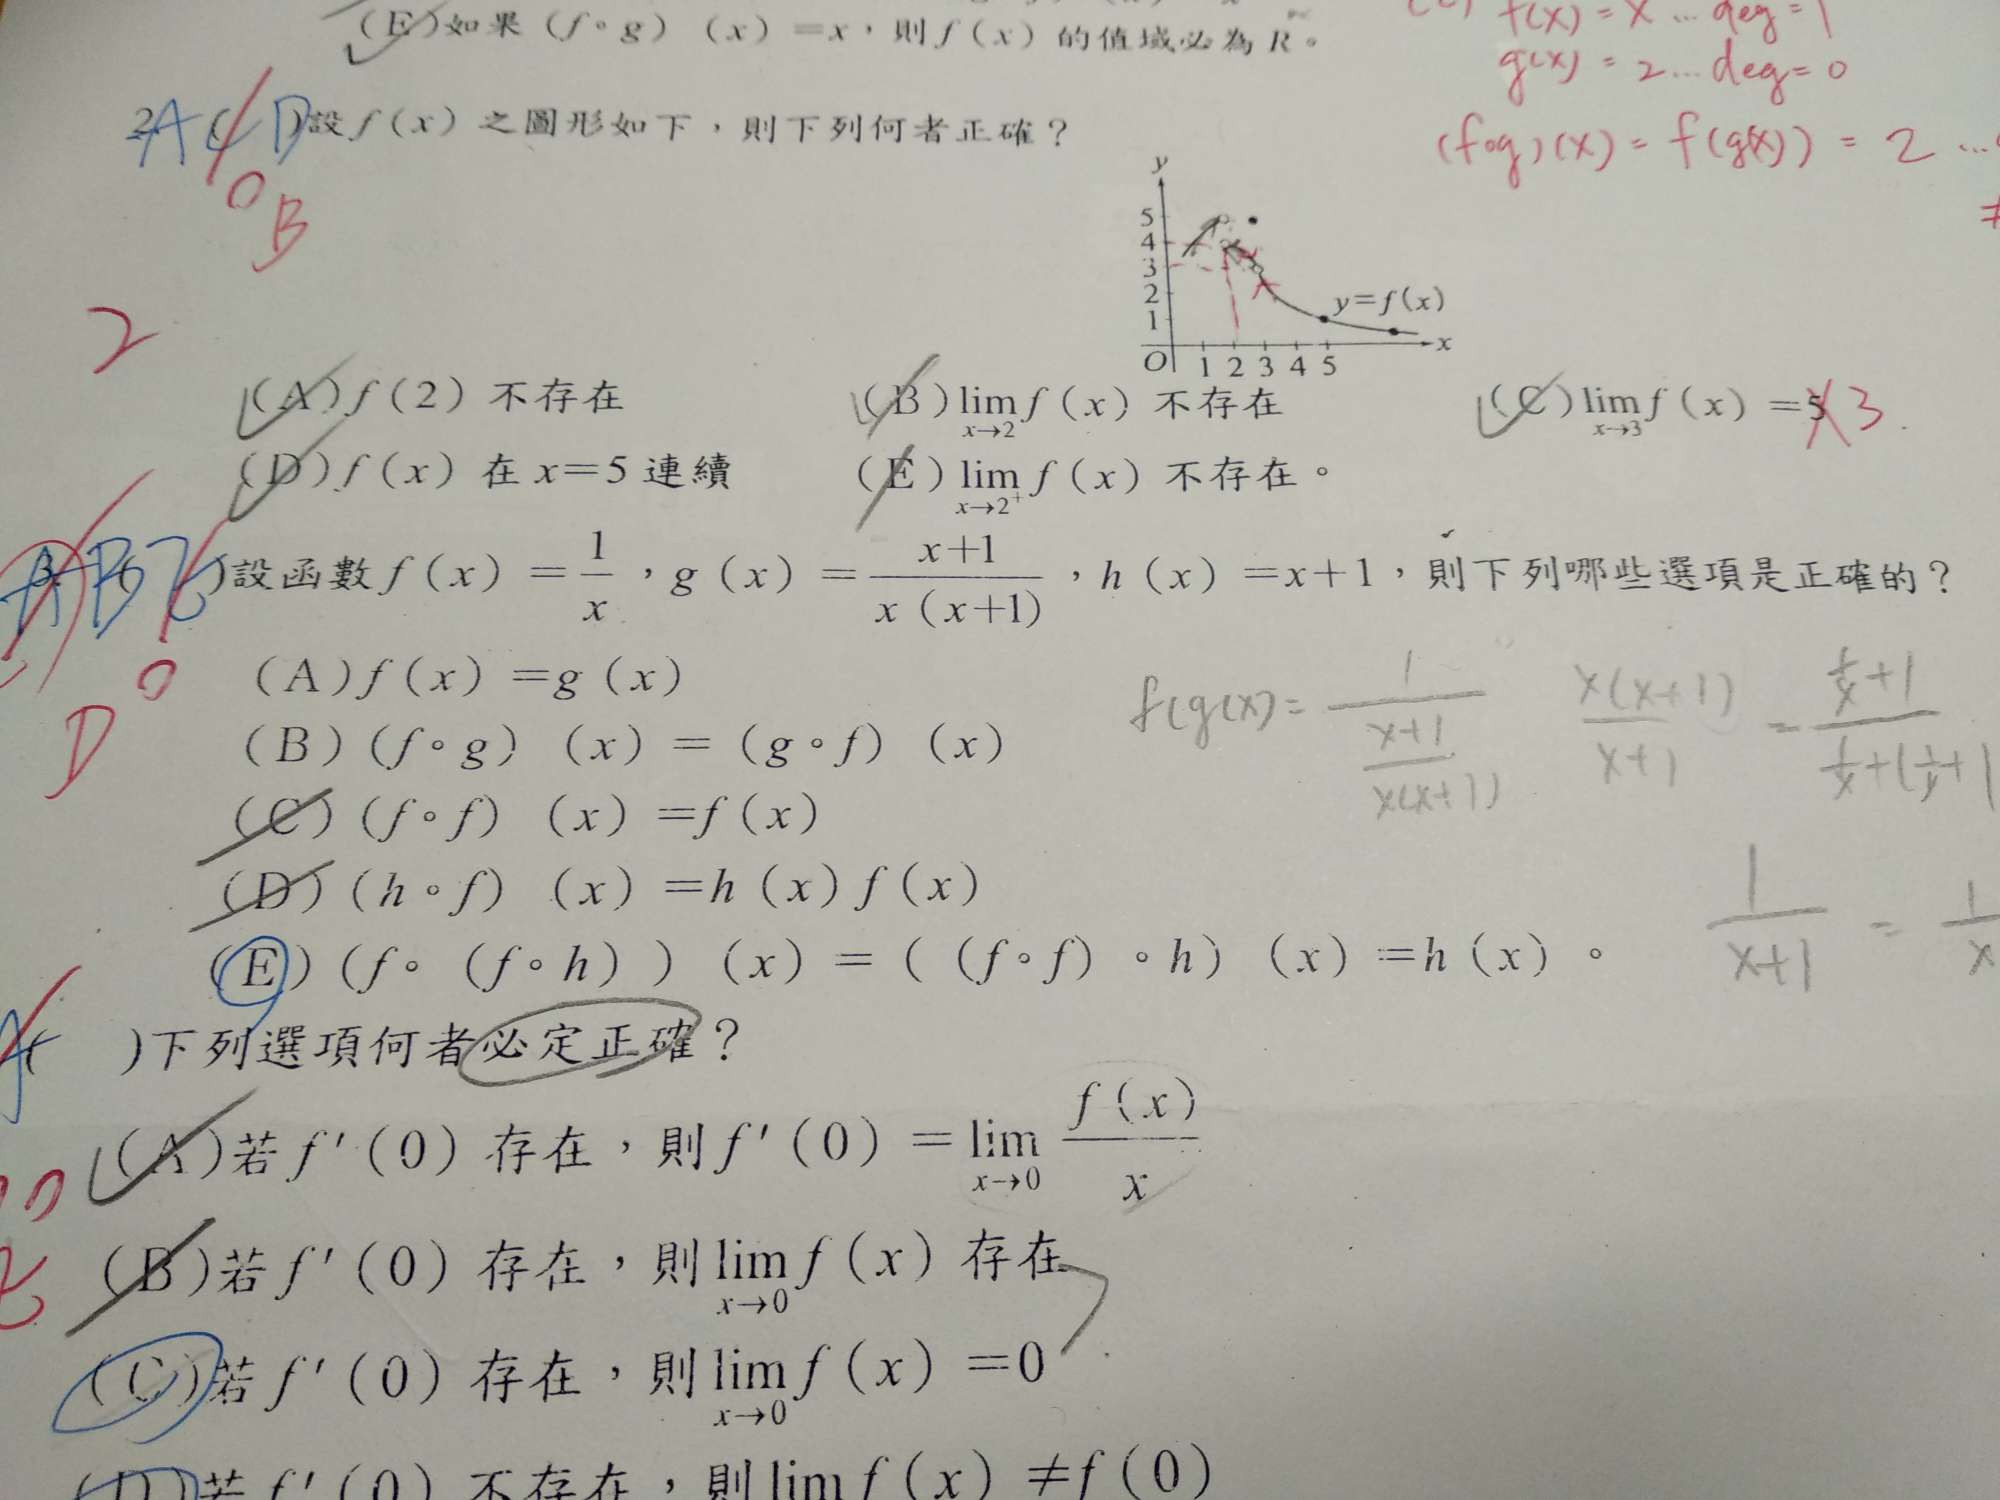 (E)如果(f∘g)(x)=x,則f(x)的值域必為R。
f(x)=x…deg=1
g(x)=2…deg=0
(f∘g)(x)=f(g(x))=2…
≠
2. ACD ( )設f(x)之圖形如下,則下列何者正確?
0
B
2
y
5
4
3
2
1
y=f(x)
O 1 2 3 4 5 x
(A)f(2)不存在 (B)lim x→2 f(x)不存在 (C)lim x→3 f(x)=5 3
(D)f(x)在x=5連續 (E)lim x→2⁺ f(x)不存在。
3. ABE ( )設函數f(x)=1/x,g(x)=(x+1)/(x(x+1)),h(x)=x+1,則下列哪些選項是正確的?
0
D
(A)f(x)=g(x)
f(g(x))=1/((x+1)/(x(x+1))) x(x+1)/(x+1) = (1/x+1)/
(B)(f∘g)(x)=(g∘f)(x)
(C)(f∘f)(x)=f(x)
(D)(h∘f)(x)=h(x)f(x)
1/(x+1) = 1/x
(E)(f∘(f∘h))(x)=((f∘f)∘h)(x)=h(x)。
A( )下列選項何者必定正確?
(A)若f′(0)存在,則f′(0)=lim x→0 f(x)/x
(B)若f′(0)存在,則lim x→0 f(x)存在
(C)若f′(0)存在,則lim x→0 f(x)=0
(D)若f′(0)不存在,則lim f(x)≠f(0)